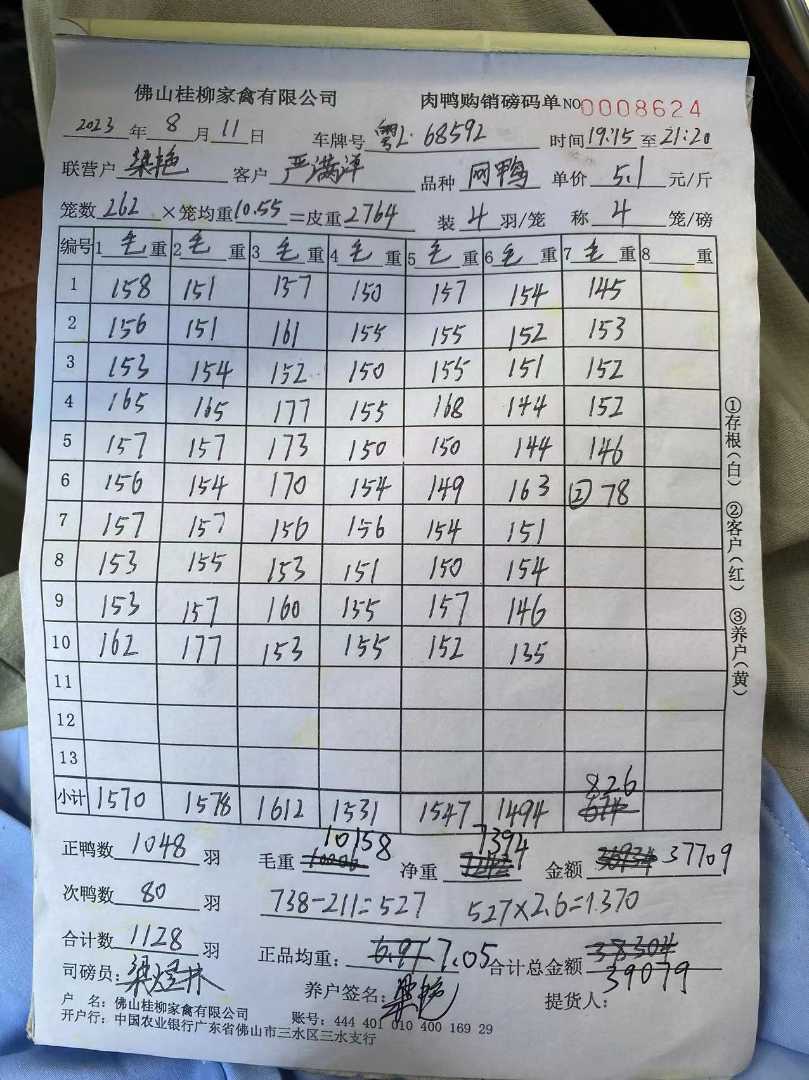 佛山桂柳家禽有限公司 肉鸭购销磅码单 NO 0008624
2023 年 8 月 11 日 车牌号 粤L·68592 时间 19:15 至 21:20
联营户 梁艳 客户 严满洋 品种 网鸭 单价 5.1 元/斤
笼数 262 ×笼均重 10.55 =皮重 2764 装 4 羽/笼 称 4 笼/磅
编号 1 毛 重 2 毛 重 3 毛 重 4 毛 重 5 毛 重 6 毛 重 7 毛 重 8 重
1 158 151 137 150 157 154 145
2 156 151 161 155 155 152 153
3 153 154 152 150 155 151 152
4 165 165 177 155 168 144 152
5 157 157 173 150 150 144 146
6 156 154 170 154 149 163 ② 78
7 157 157 156 156 154 151
8 153 155 153 151 150 154
9 153 157 160 155 157 146
10 162 177 153 155 152 135
11
12
13
826
小计 1570 1578 1612 1531 1547 1494 674
正鸭数 1048 羽 毛重 10158 净重 7394 金额 37709
次鸭数 80 羽 738-211=527 527×2.6=1370
合计数 1128 羽 正品均重: 6.91 7.05 合计总金额 38304
39079
司磅员: 养户签名: 梁艳 提货人:
户 名: 佛山桂柳家禽有限公司 账号: 444 401 010 400 169 29
开户行: 中国农业银行广东省佛山市三水区三水支行
①存根(白) ②客户(红) ③养户(黄)